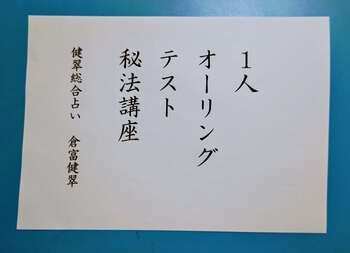 １人
オーリング
テスト
秘法講座
健翠総合占い　倉富健翠